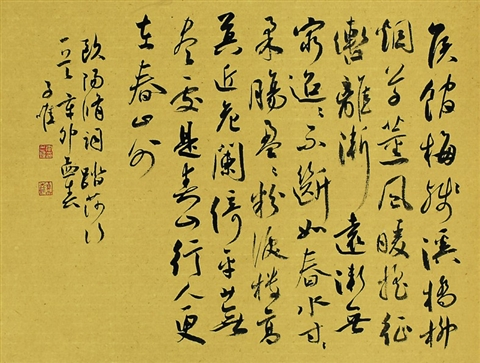 候館梅殘溪橋柳
細草薰風暖搖征
轡離漸遠漸無
窮迢迢不斷如春水寸寸
柔腸盈盈粉淚樓高
莫近危闌倚平蕪
盡處是春山行人更
在春山外
歐陽修詞踏莎行
辛卯孟春